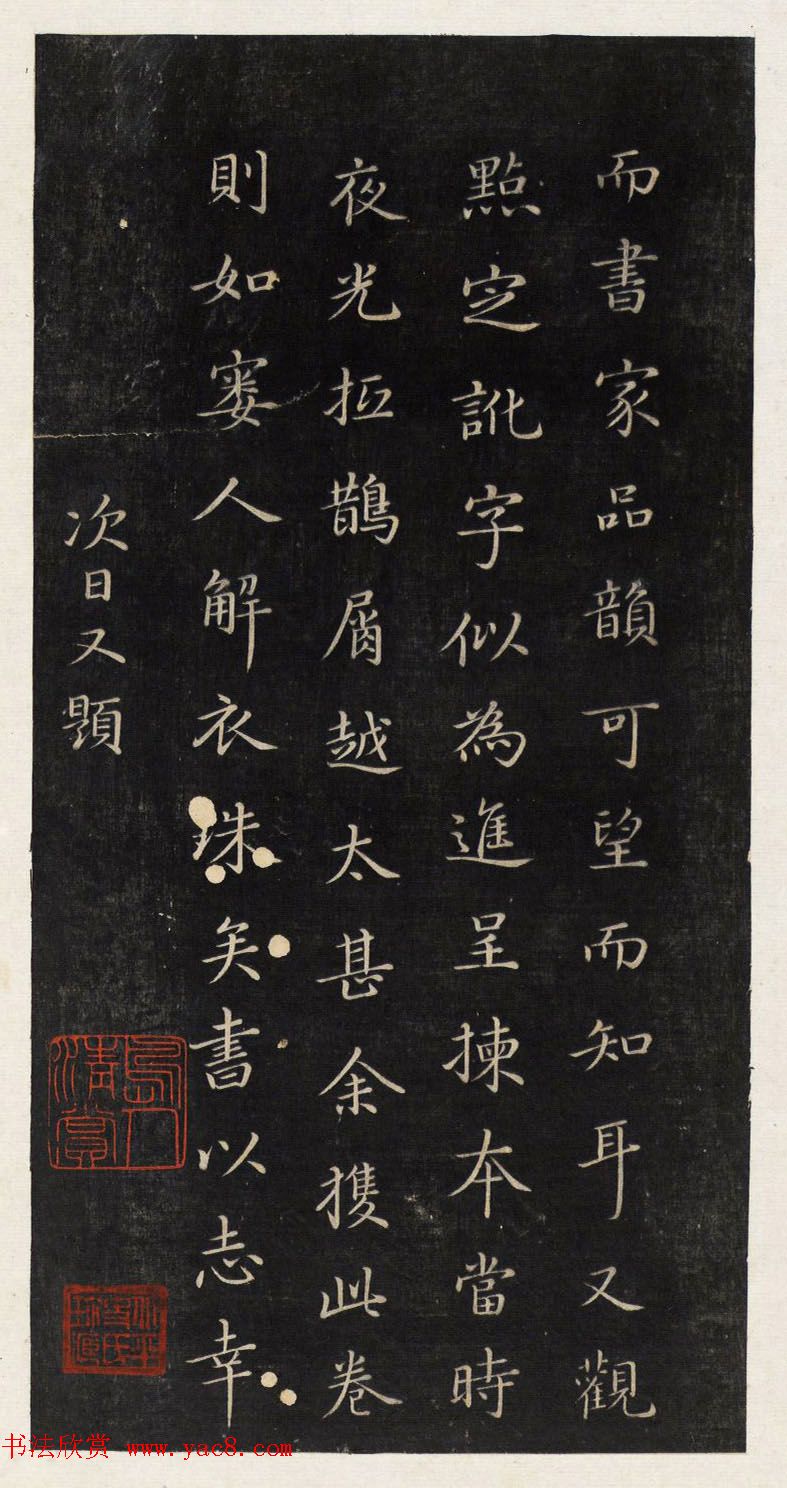 而書家品韻可望而知耳又觀
點定訛字似為進呈揀本當時
夜光抵鵲屑越太甚余獲此卷
則如窶人解衣珠矣書以志幸
次日又題
清賞
书法欣赏 www.yac8.com